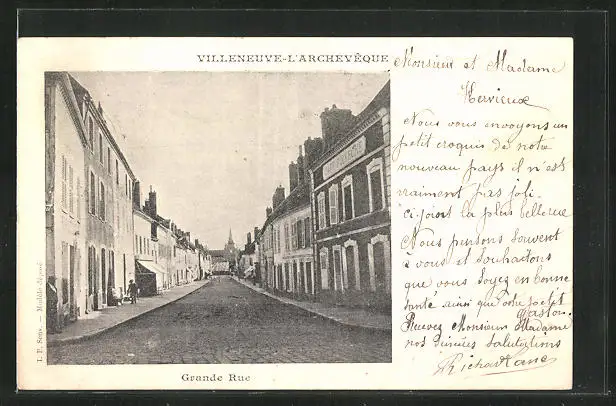 VILLENEUVE-L'ARCHEVÊQUE
Monsieur et Madame
Hervieux
Nous vous envoyons un
petit croquis de notre
nouveau pays il n'est
vraiment pas joli.
ci-joint la plus belle rue
Nous pensons souvent
à vous et souhaitons
que vous soyez en bonne
santé ainsi que votre petit
Gaston.
Recevez Monsieur Madame
nos sincères salutations
L. F. Sens. — Modèle déposé
Grande Rue